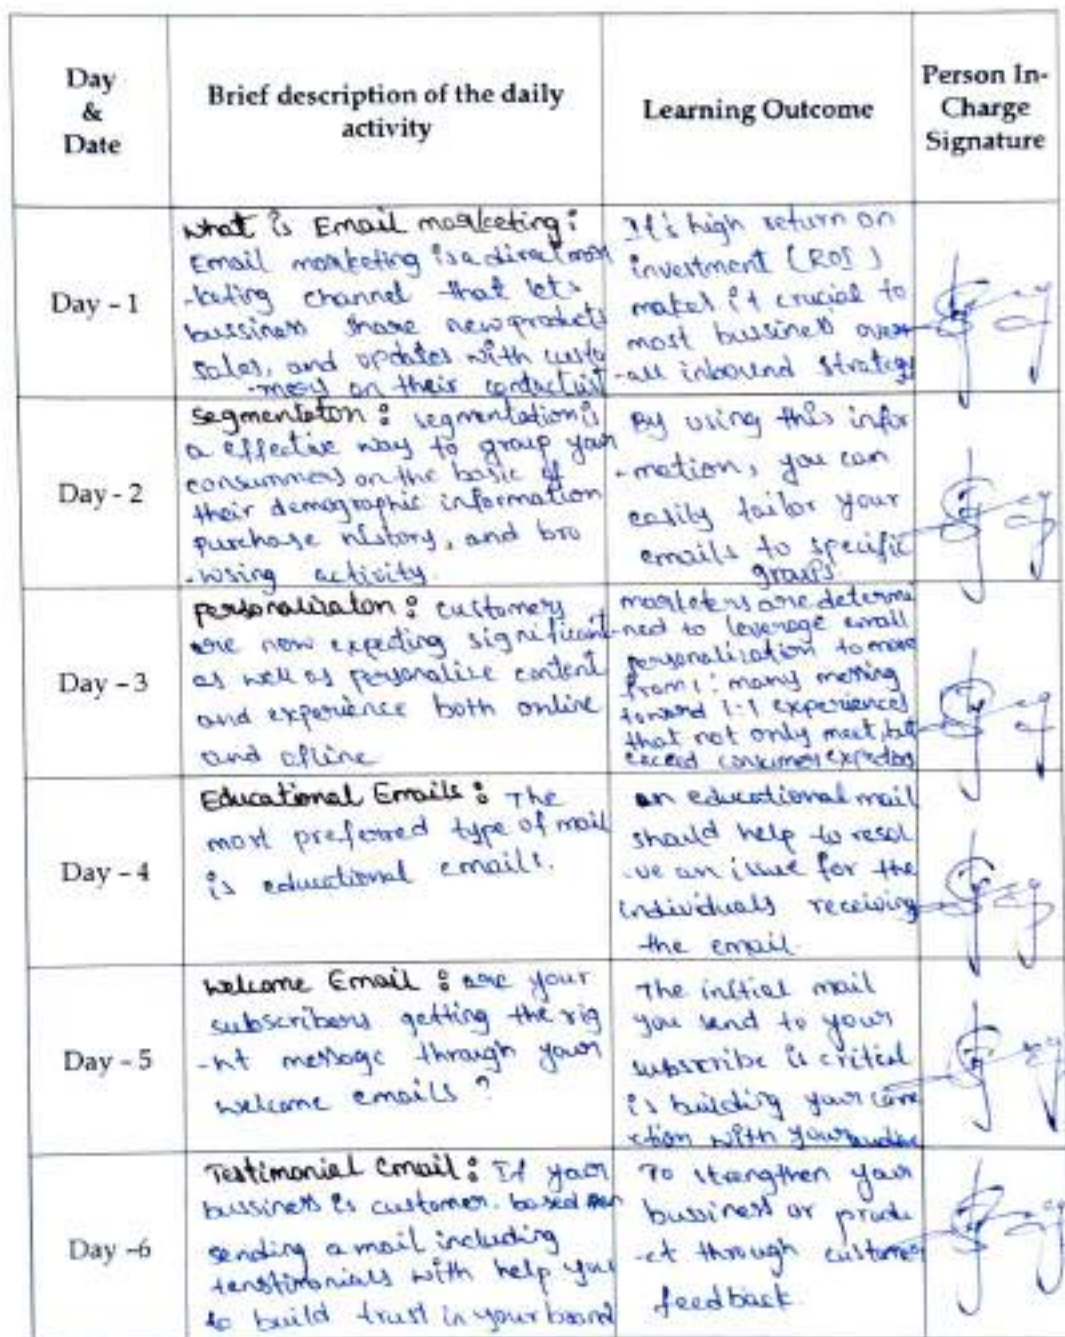 Day
&
Date
Brief description of the daily
activity
Learning Outcome
Person In-
Charge
Signature
Day - 1
what is Email marketing :
Email marketing is a direct mar
-keting channel that lets
bussiness share new products
sales, and updates with custo
-mers on their contactlist
It's high return on
investment (ROI)
makes it crucial to
most bussiness over
-all inbound strategy
Day - 2
segmentaton : segmentation is
a effective way to group your
consummers on the basic of
their demographic information
purchase history, and bro
-wsing activity.
By using this infor
-mation, you can
easily tailor your
emails to specific
groups.
Day - 3
personalizaton : customers
are now expecting significant
as well as personalize content
and experience both online
and ofline
marketers are determi
-ned to leverage email
personalization to more
many moving
toward 1-1 experiences
that not only meet, but
exceed consumer
Day - 4
Educational Emails : The
most preferred type of mail
is educational emails.
an educational mail
should help to resol
-ve an issue for the
individuals receiving
the email.
Day - 5
welcome Email : are your
subscribers getting the rig
-ht message through your
welcome emails ?
The initial mail
you send to your
subscribe is critical
is building your conne
-ction with your
Day -6
Testimonial Email : If your
bussiness is customer. based
sending a mail including
tenstimonials with help you
to build trust in your brand
To strengthen your
bussiness or produ
-ct through customer
feedback.